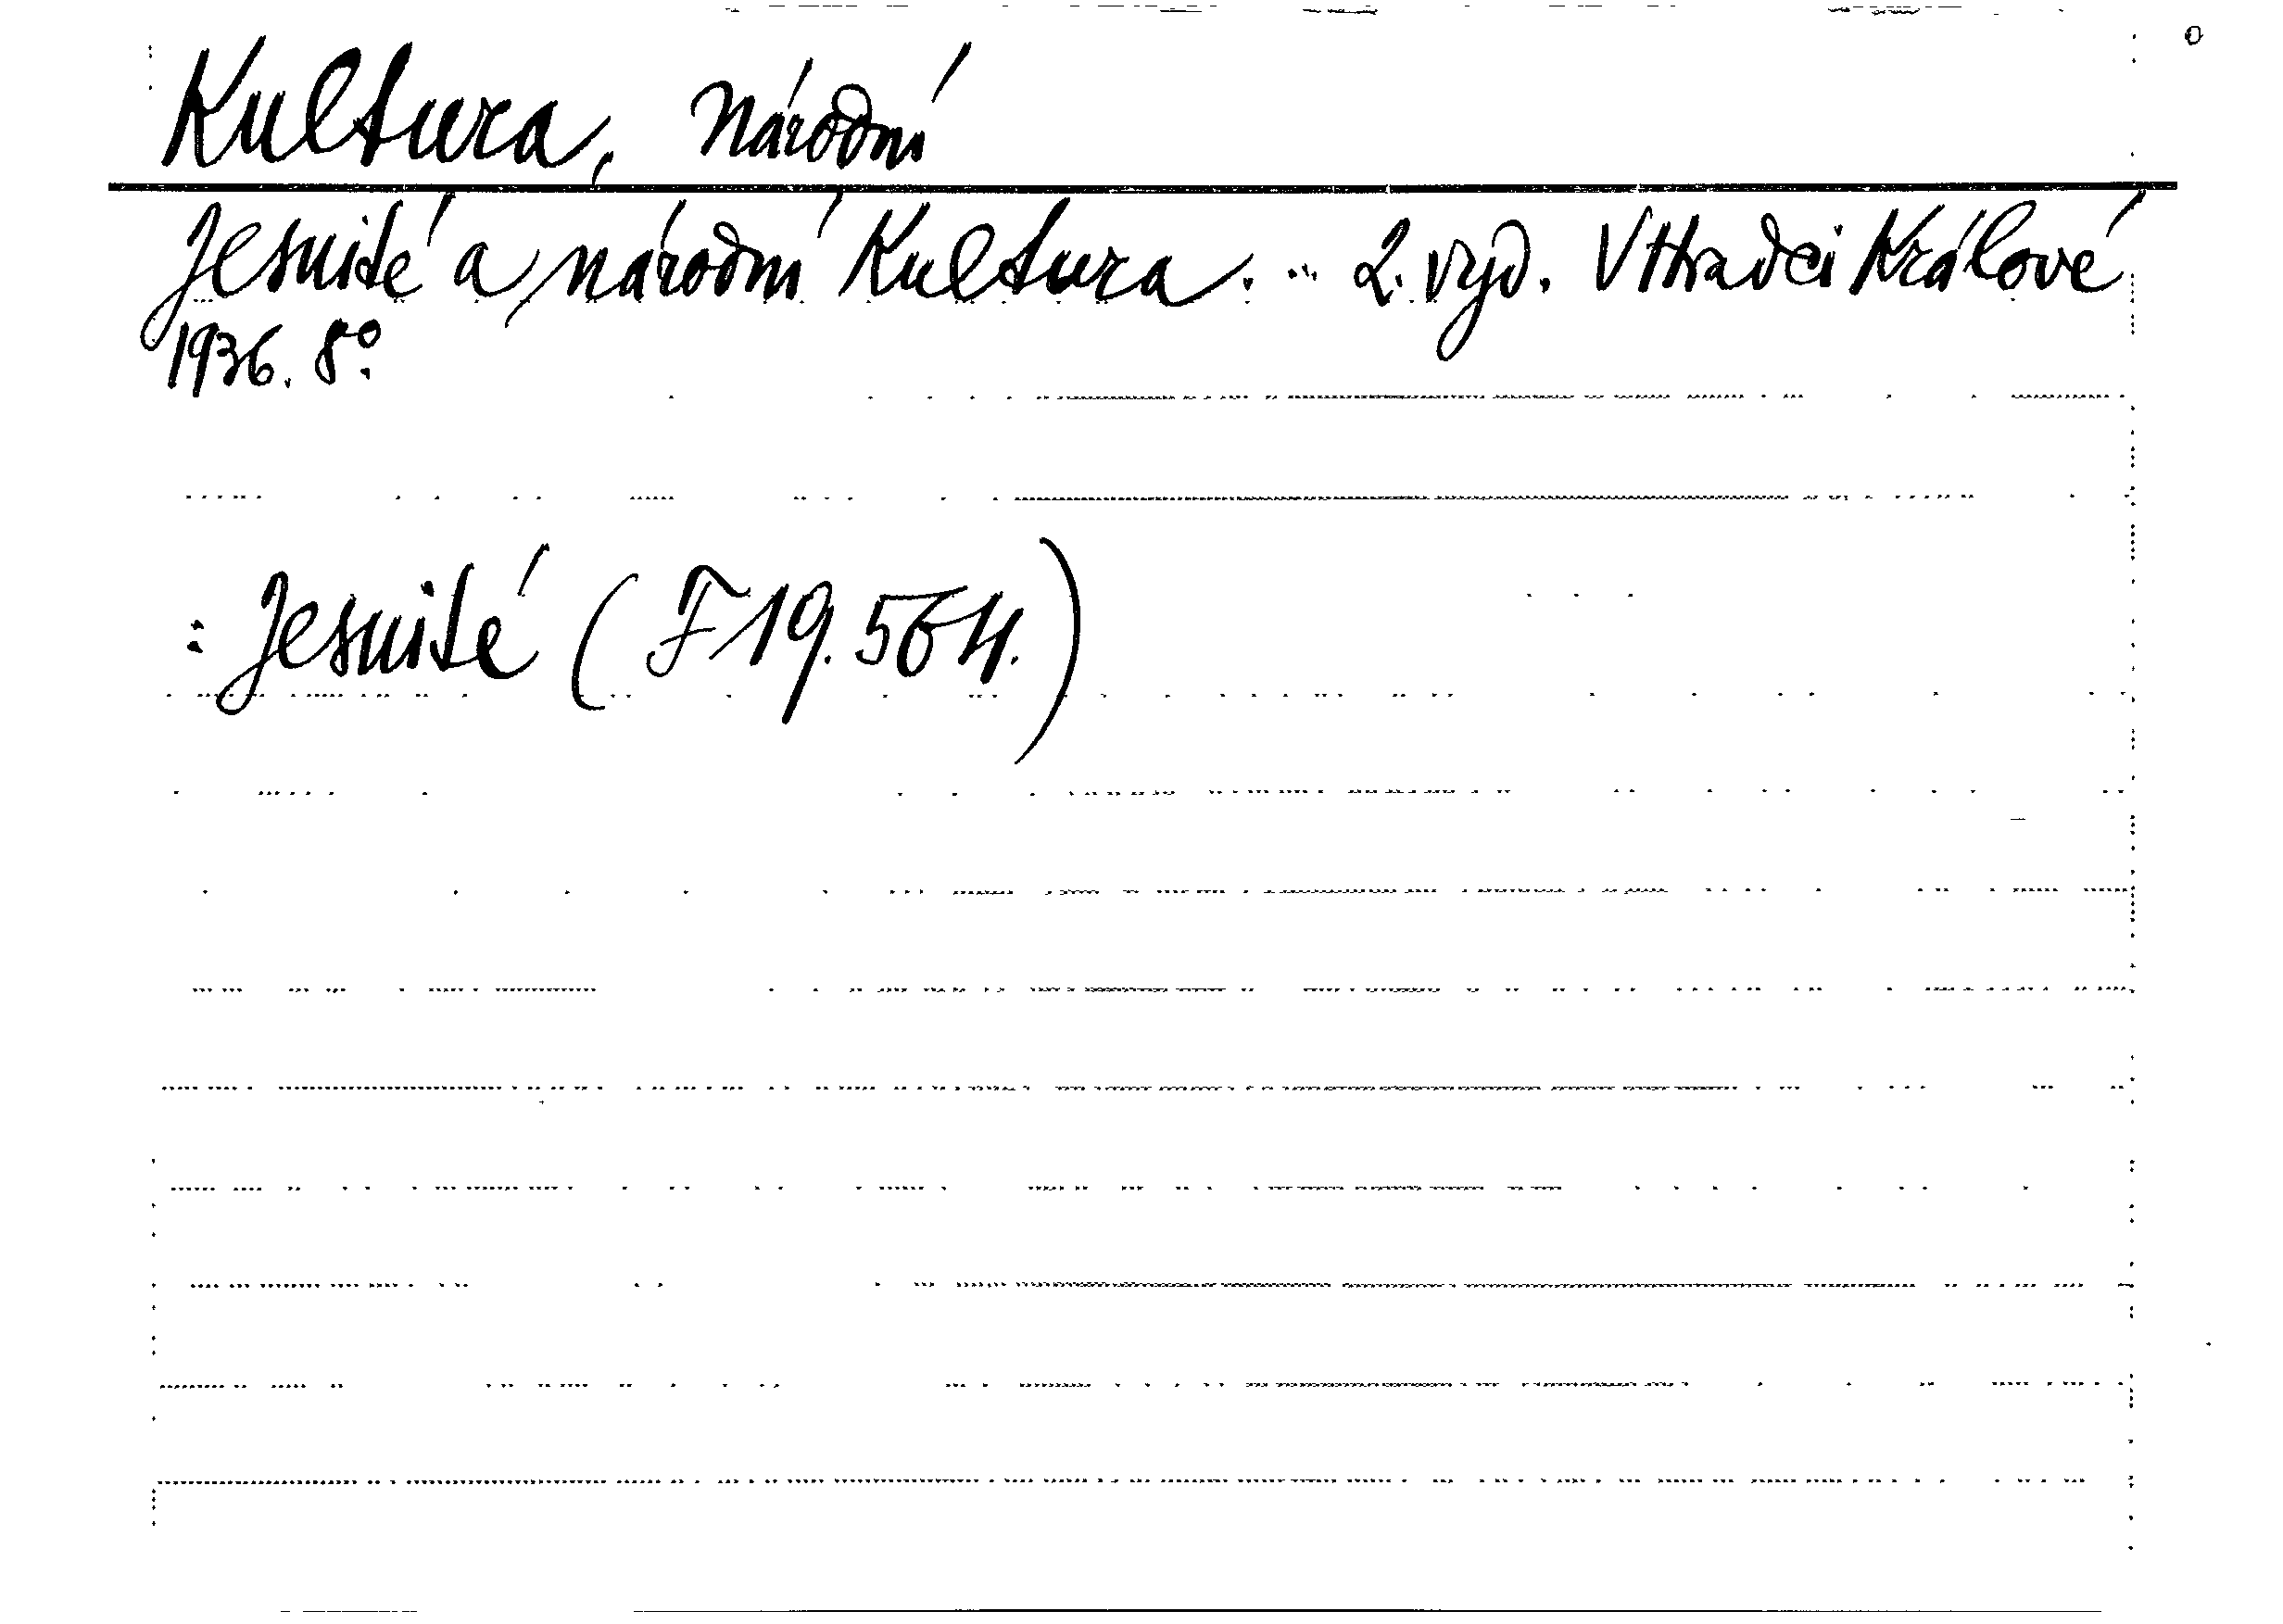 Kultura, národní
Jesuité a národní kultura. - 2. vyd. V Hradci Králové
1936. 8°.
: Jesuité (F 19.564.)